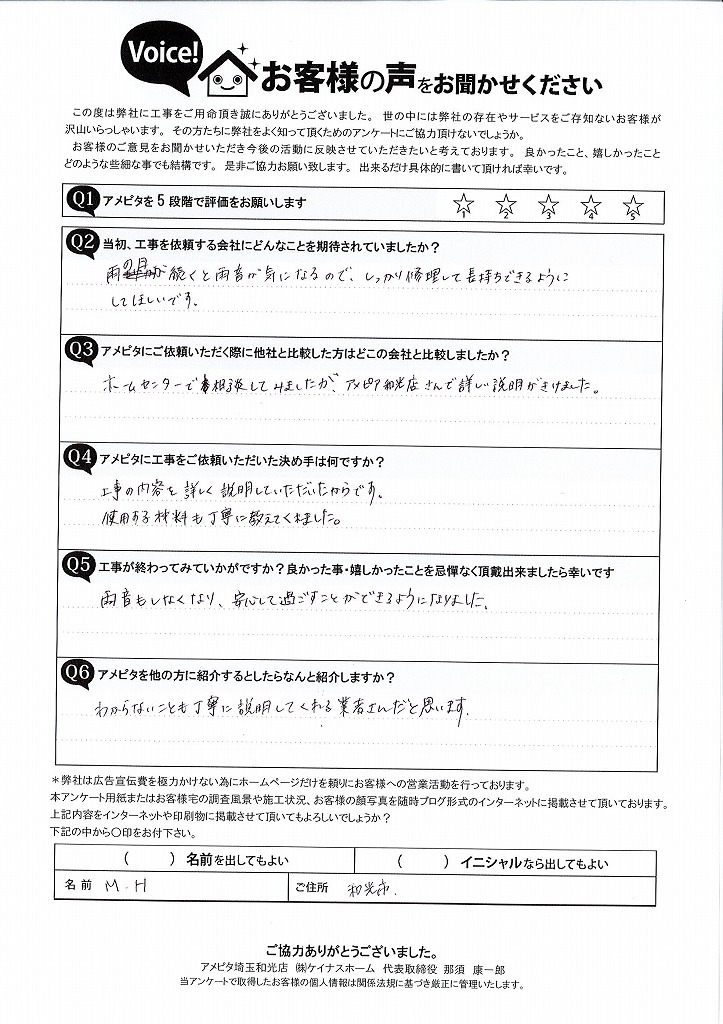 Voice!
お客様の声をお聞かせください
この度は弊社に工事をご用命頂き誠にありがとうございました。 世の中には弊社の存在やサービスをご存知ないお客様が
沢山いらっしゃいます。 その方たちに弊社をよく知って頂くためのアンケートにご協力頂けないでしょうか。
お客様のご意見をお聞かせいただき今後の活動に反映させていただきたいと考えております。 良かったこと、嬉しかったこと
どのような些細な事でも結構です。 是非ご協力お願い致します。 出来るだけ具体的に書いて頂ければ幸いです。
Q1 アメピタを5段階で評価をお願いします ☆1 ☆2 ☆3 ☆4 ☆5
Q2 当初、工事を依頼する会社にどんなことを期待されていましたか？
雨の日が続くと雨音が気になるので、しっかり修理して長持ちできるように
してほしいです。
Q3 アメピタにご依頼いただく際に他社と比較した方はどこの会社と比較しましたか？
ホームセンターで相談してみましたが、アメピタ和光店さんで詳しい説明がきけました。
Q4 アメピタに工事をご依頼いただいた決め手は何ですか？
工事の内容を詳しく説明していただいたからです。
使用する材料も丁寧に教えてくれました。
Q5 工事が終わってみていかがですか？良かった事・嬉しかったことを忌憚なく頂戴出来ましたら幸いです
雨音もしなくなり、安心して過ごすことができるようになりました。
Q6 アメピタを他の方に紹介するとしたらなんと紹介しますか？
わからないことも丁寧に説明してくれる業者さんだと思います。
＊弊社は広告宣伝費を極力かけない為にホームページだけを頼りにお客様への営業活動を行っております。
本アンケート用紙またはお客様宅の調査風景や施工状況、お客様の顔写真を随時ブログ形式のインターネットに掲載させて頂いております。
上記内容をインターネットや印刷物に掲載させて頂いてもよろしいでしょうか？
下記の中から〇印をお付下さい。
（　　）名前を出してもよい （　　）イニシャルなら出してもよい
名前 M.H ご住所 和光市.
ご協力ありがとうございました。
アメピタ埼玉和光店 ㈱ケイナスホーム 代表取締役 那須 康一郎
当アンケートで取得したお客様の個人情報は関係法規に基づき厳正に管理いたします。